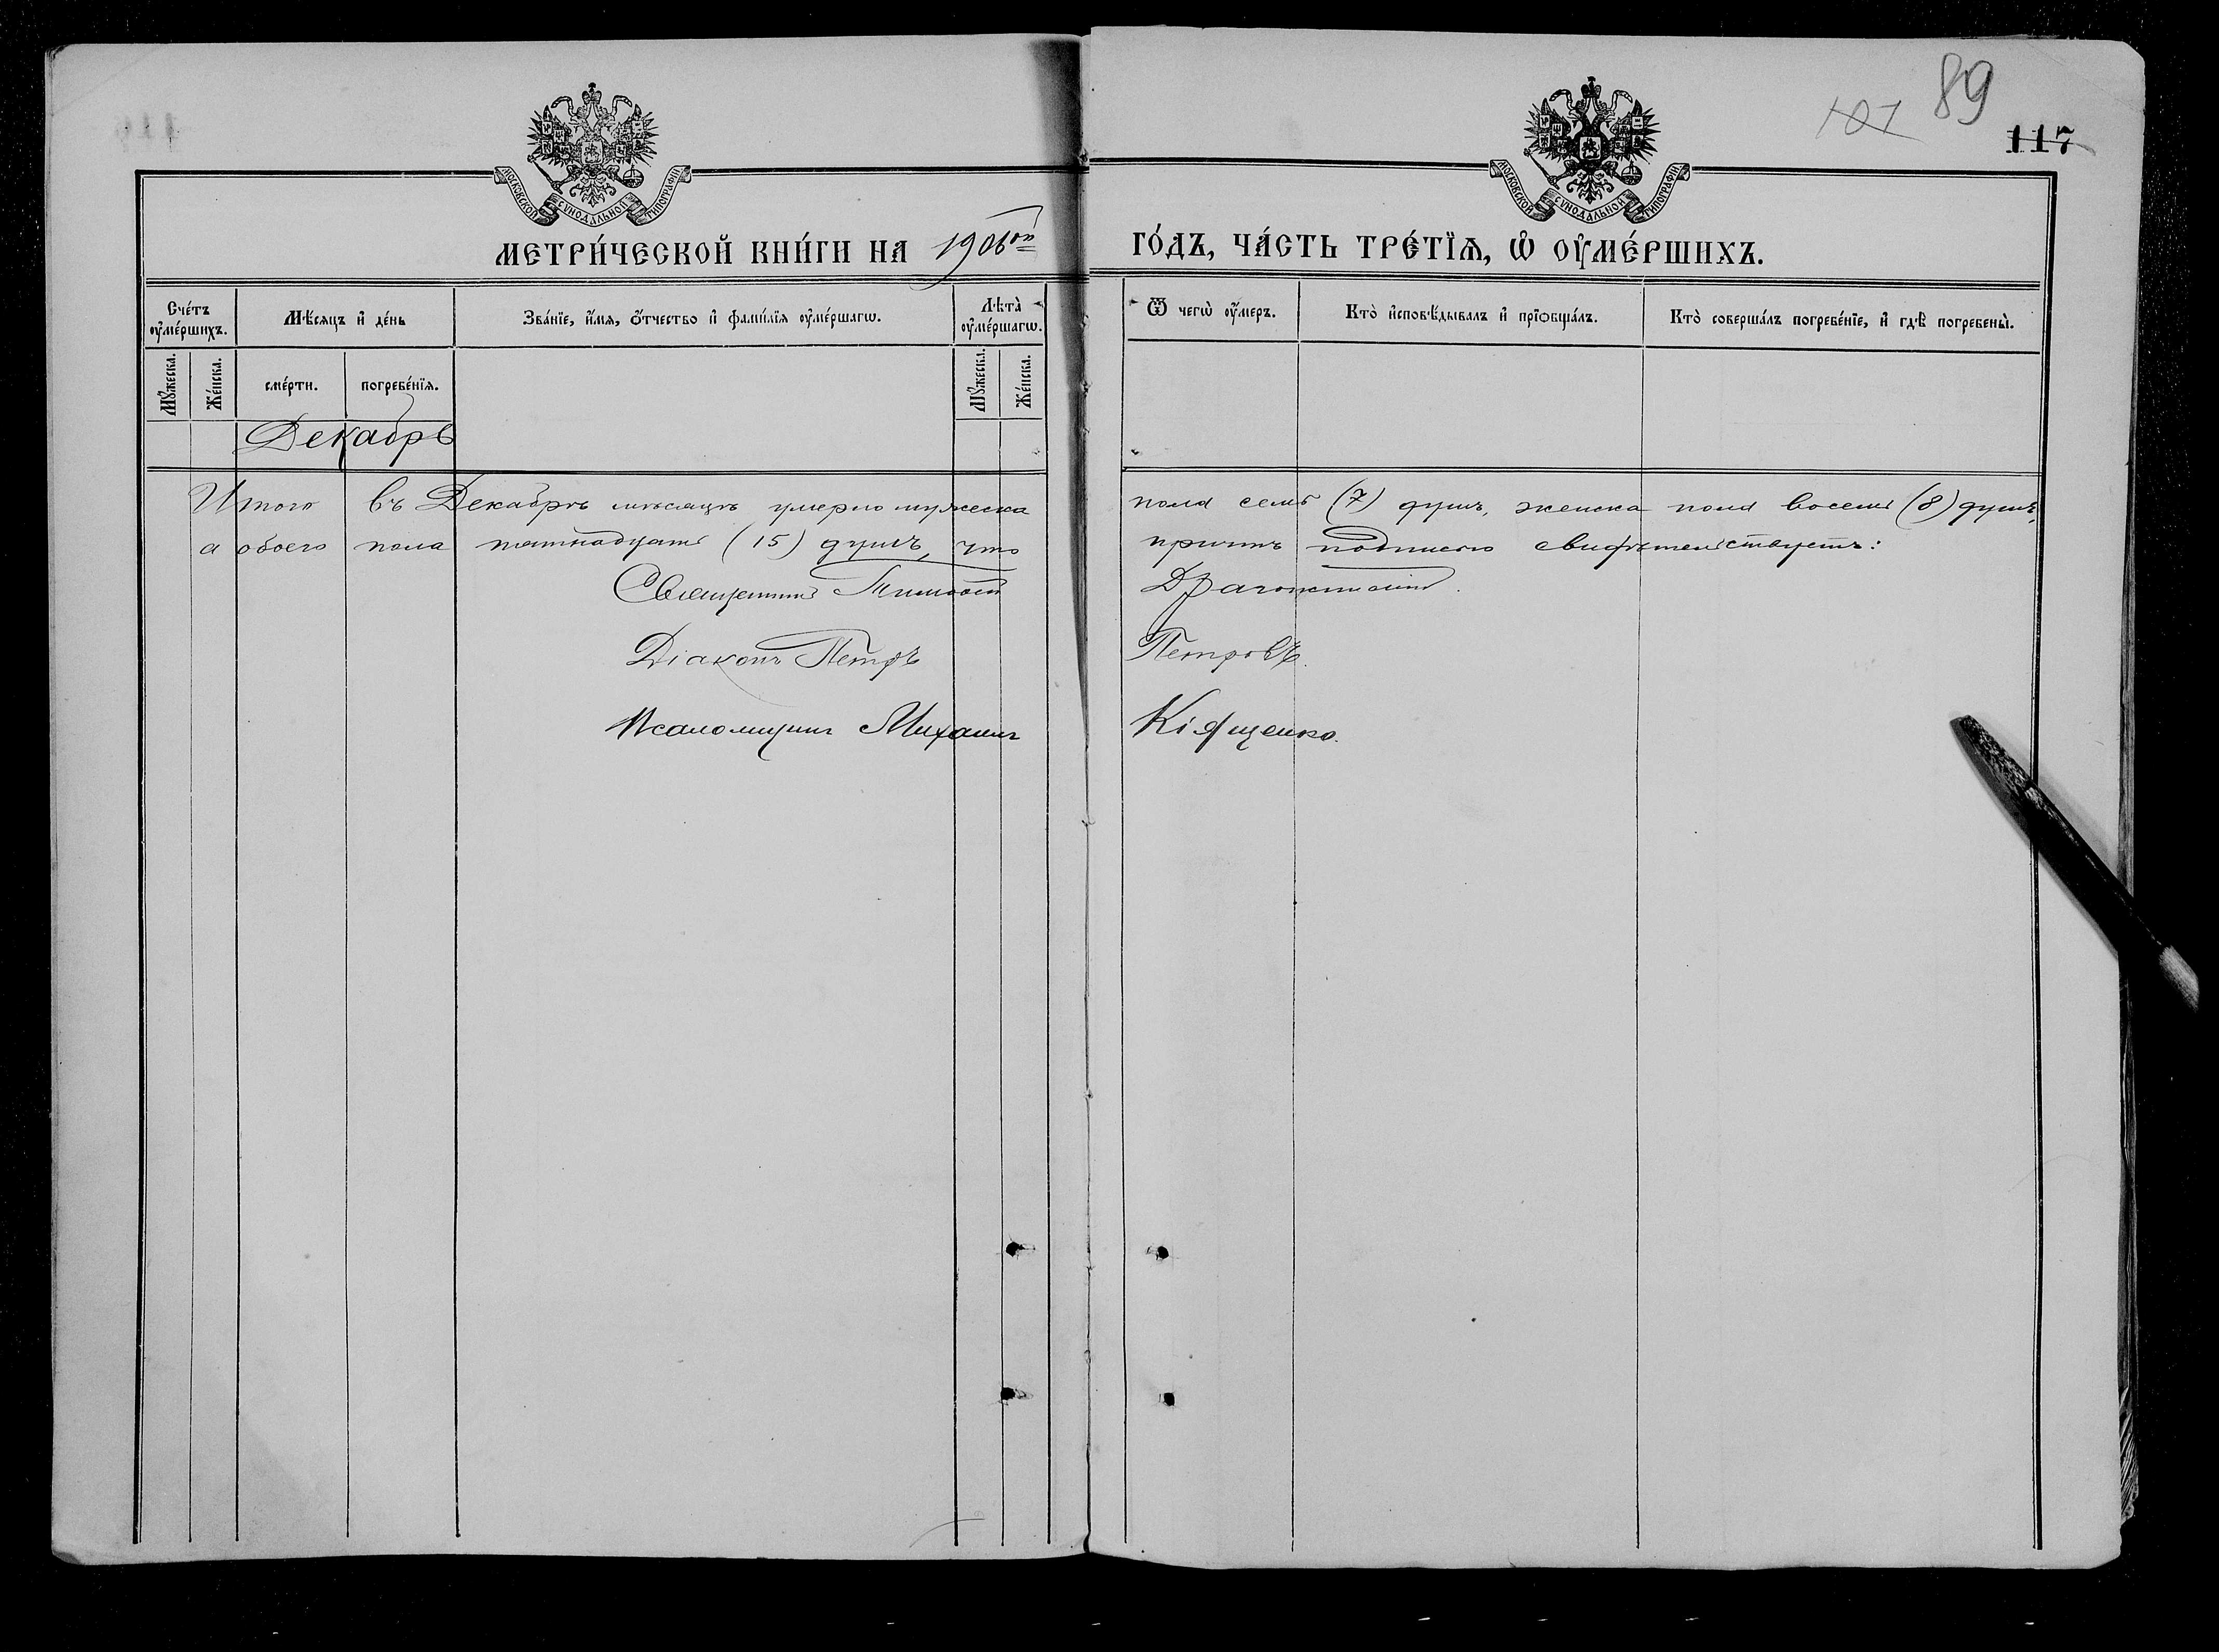 89
101
117
МОСКОВСКОЙ СУНОДАЛЬНОЙ ТИПОГРАФІИ.
МОСКОВСКОЙ СУНОДАЛЬНОЙ ТИПОГРАФІИ.
МЕТРИ́ЧЕСКОЙ КНИ́ГИ НА 1906ой ГО́ДЪ, ЧА́СТЬ ТРЕ́ТЇѦ, Ѡ҆ ОУ҆МЕ́РШИХЪ.
Сче́тъ оу҆ме́ршихъ.
Мѣ́сяцъ и҆ де́нь
Зва́нїе, и҆́мя, ѻ҆́тчество и҆ фами́лїя оу҆ме́ршагѡ.
Лѣ́та оу҆ме́ршагѡ.
Ѿ чегѡ̀ оу҆́меръ.
Кто̀ и҆сповѣ́дывалъ и҆ прїѡбща́лъ.
Кто̀ соверша́лъ погребе́нїе, и҆ гдѣ̀ погребены̀.
Му́жеска.
Же́нска.
сме́рти.
погребе́нїя.
Му́жеска.
Же́нска.
Декабрь
Итого въ Декабрѣ мѣсяцѣ умерло мужеска пола семь (7) душъ, женска пола восемь (8) душъ,
а обоего пола пятнадцать (15) душъ, что причтъ подписью свидѣтельствуетъ:
Священникъ Тимоѳей
Діаконъ Петръ Петровъ.
Псаломщикъ Михаилъ Кіященко.